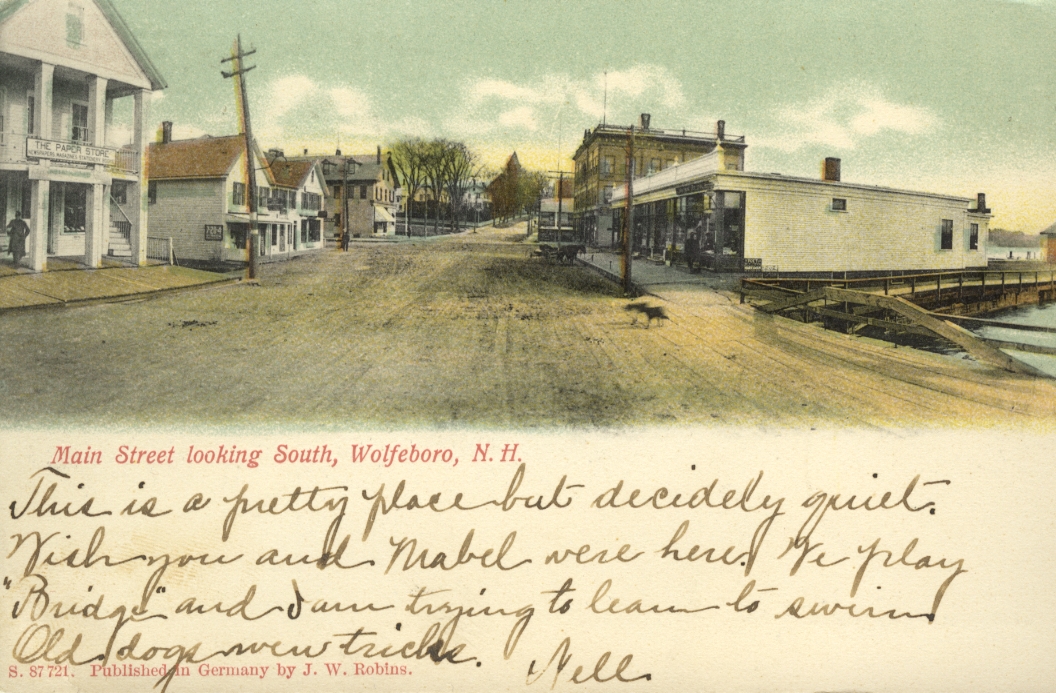 THE PAPER STORE
Main Street looking South, Wolfeboro, N. H.
This is a pretty place but decidely quiet.
Wish you and Mabel were here. We play
"Bridge" and I am trying to learn to swim
Old dogs new tricks.
Nell.
S. 87721. Published in Germany by J. W. Robins.